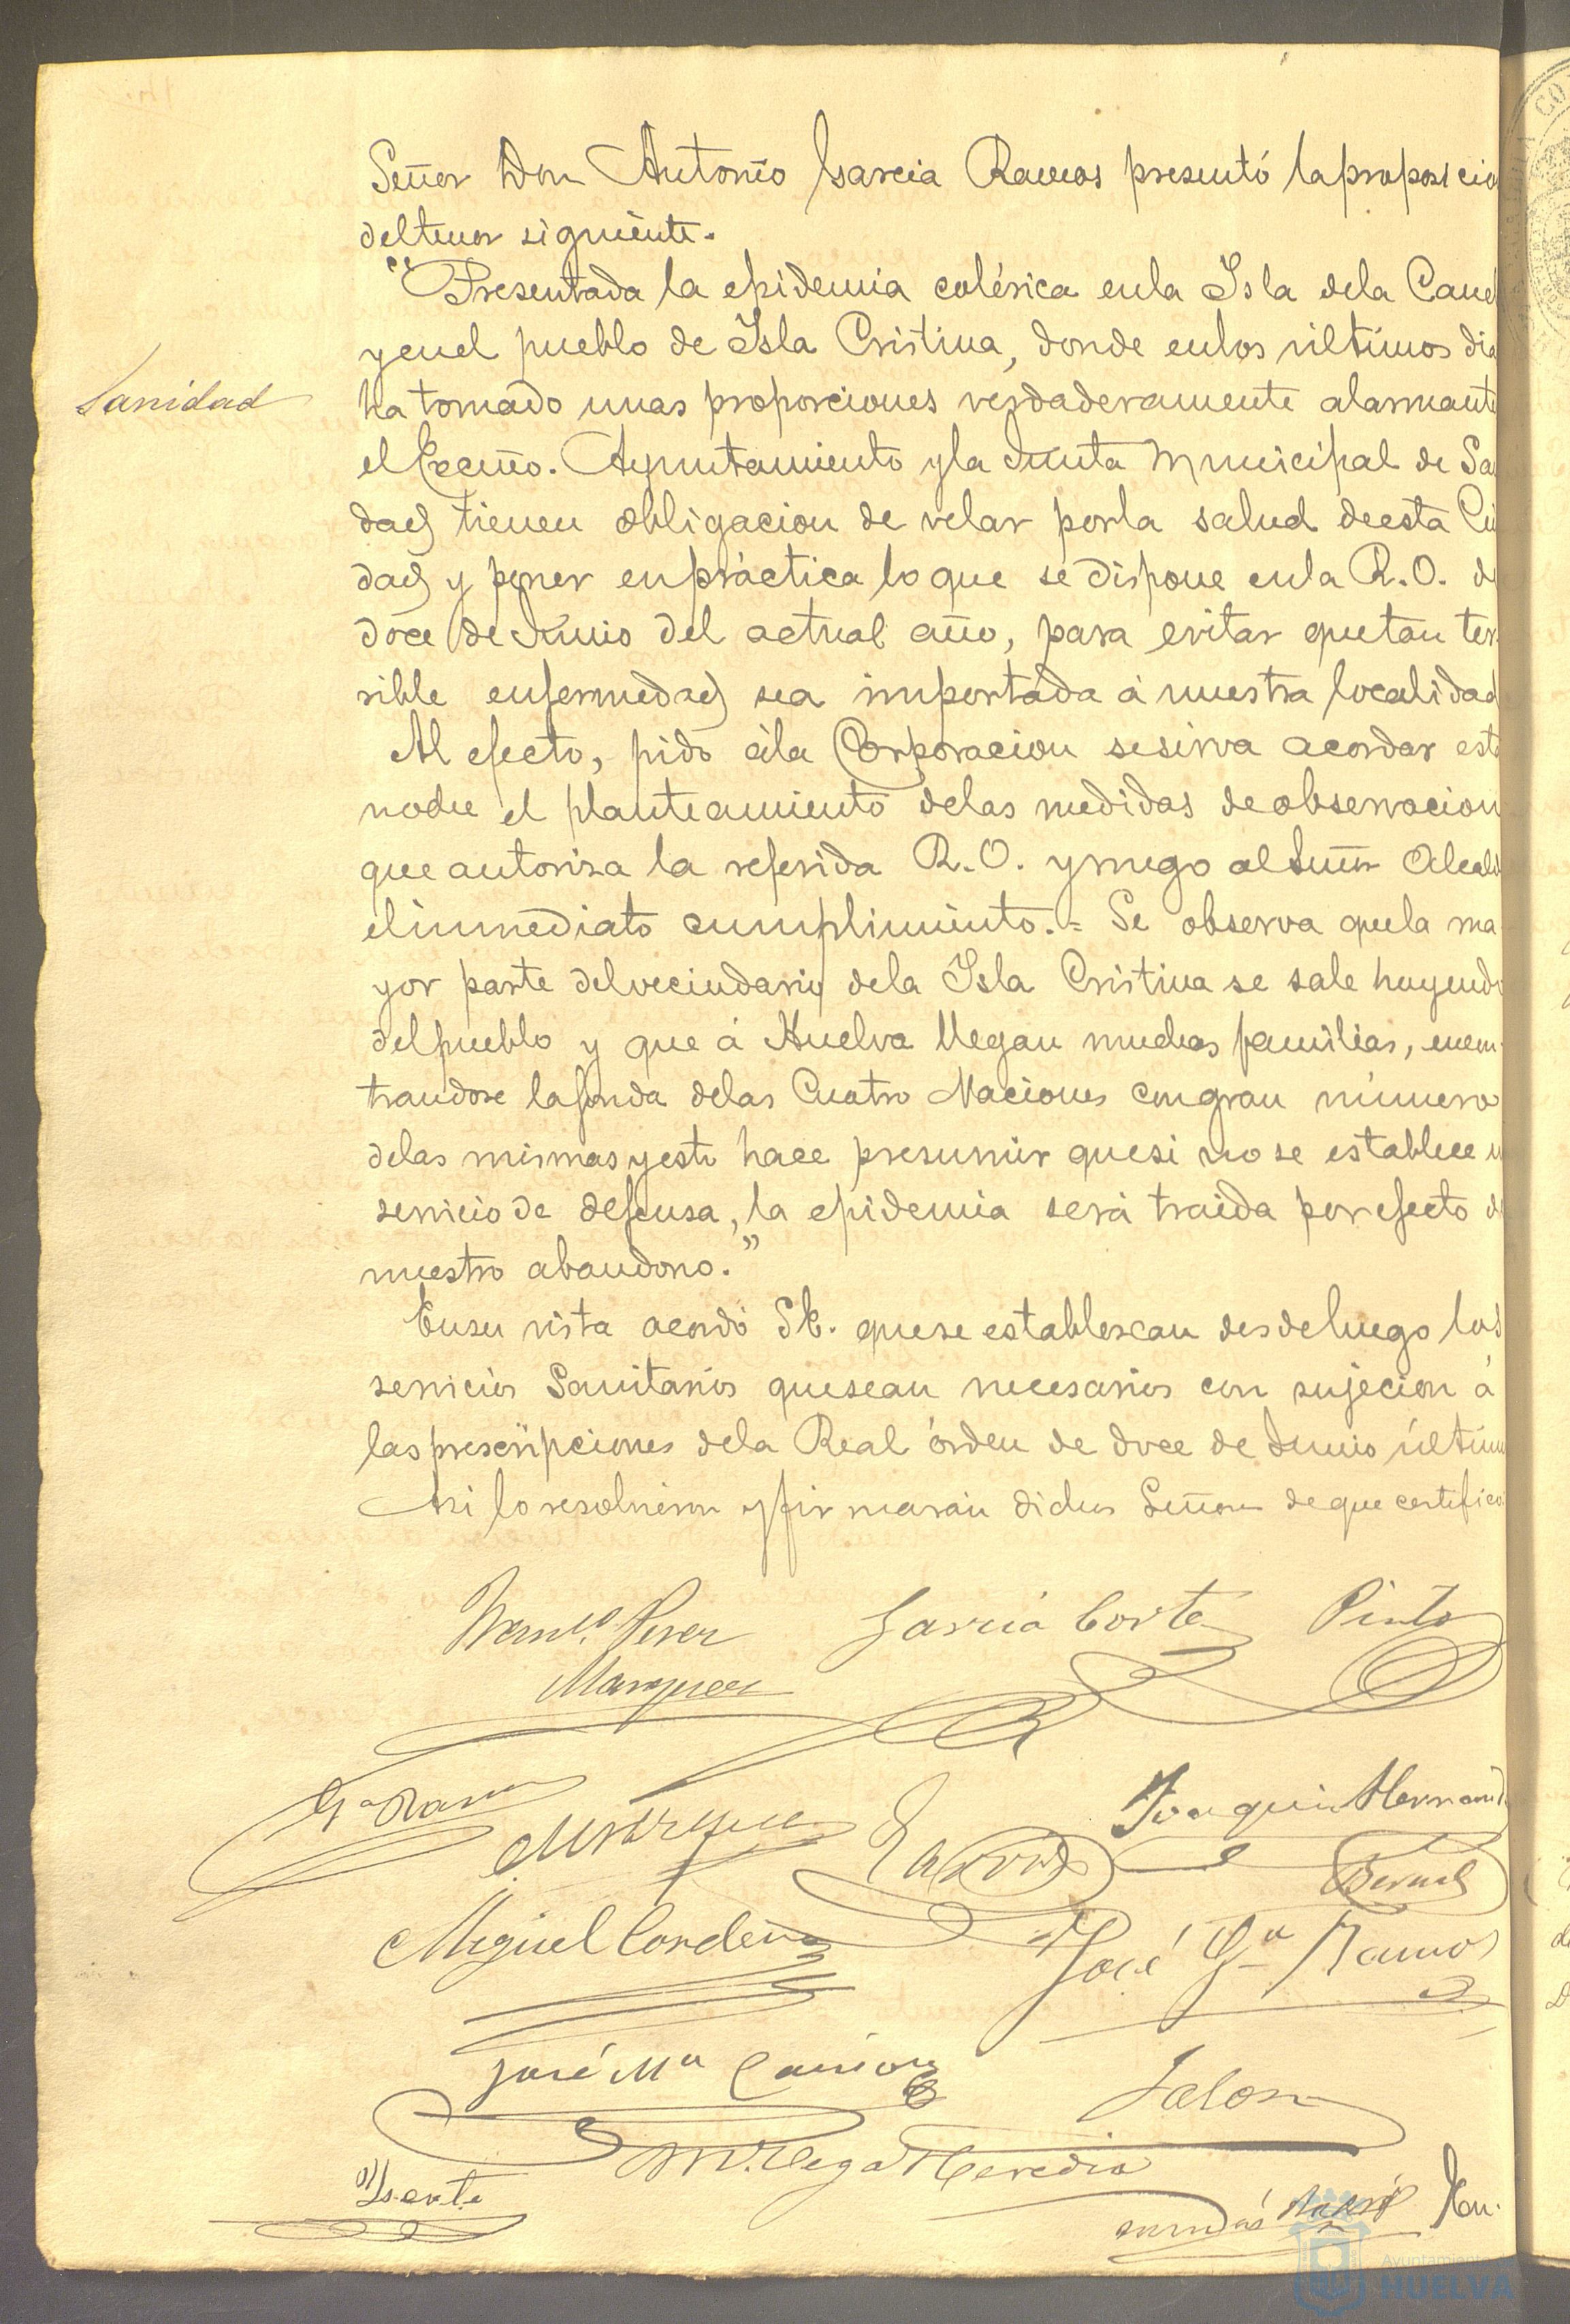 Señor Don Antonio Garcia Ramos presentó la proposicio
del tenor siguiente.
"Presentada la epidemia colérica en la Isla de la Canel
y en el pueblo de Isla Cristina, donde en los últimos dia
Sanidad
ha tomado unas proporciones verdaderamente alarmante
el Excmo. Ayuntamiento y la Junta Municipal de Sa
dad tienen obligacion de velar por la salud de esta Ciu
dad y poner en práctica lo que se dispone en la R. O. de
doce de Junio del actual año, para evitar que tan ter
rible enfermedad sea importada á nuestra localidad
Al efecto, pido á la Corporacion se sirva acordar esta
noche el planteamiento de las medidas de observacion
que autoriza la referida R. O. y ruego al Señor Alcald
el inmediato cumplimiento.= Se observa que la ma
yor parte del vecindario de la Isla Cristina se sale huyendo
del pueblo y que á Huelva llegan muchas familias, encon
trandose la fonda de las Cuatro Naciones con gran número
de las mismas y esto hace presumir que si no se establece u
servicio de defensa, la epidemia será traida por efecto de
nuestro abandono."
En su vista acordó S.E. que se establescan desde luego los
servicios Sanitarios que sean necesarios con sujecion á
las prescripciones de la Real órden de doce de Junio último
Asi lo resolvieron y firmarán dichos Señores de que certifico
Franco. Perez Garcia Cortés Pinto
Marquez
Ga. Ramos Marquez Joaquin Hernand
Bernal
Miguel Cordero José Ga Ramos
José Ma Carrion Jalon
M. Vega Heredia